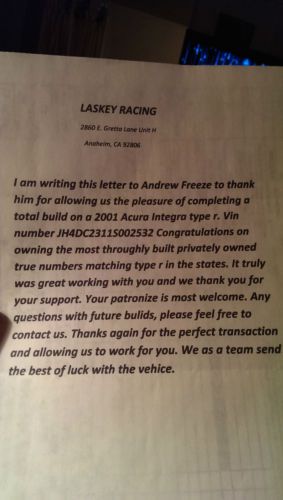 LASKEY RACING
2860 E. Gretta Lane Unit H
Anaheim, CA 92806
I am writing this letter to Andrew Freeze to thank
him for allowing us the pleasure of completing a
total build on a 2001 Acura Integra type r. Vin
number JH4DC23115002532 Congratulations on
owning the most throughly built privately owned
true numbers matching type r in the states. It truly
was great working with you and we thank you for
your support. Your patronize is most welcome. Any
questions with future bulids, please feel free to
contact us. Thanks again for the perfect transaction
and allowing us to work for you. We as a team send
the best of luck with the vehice.